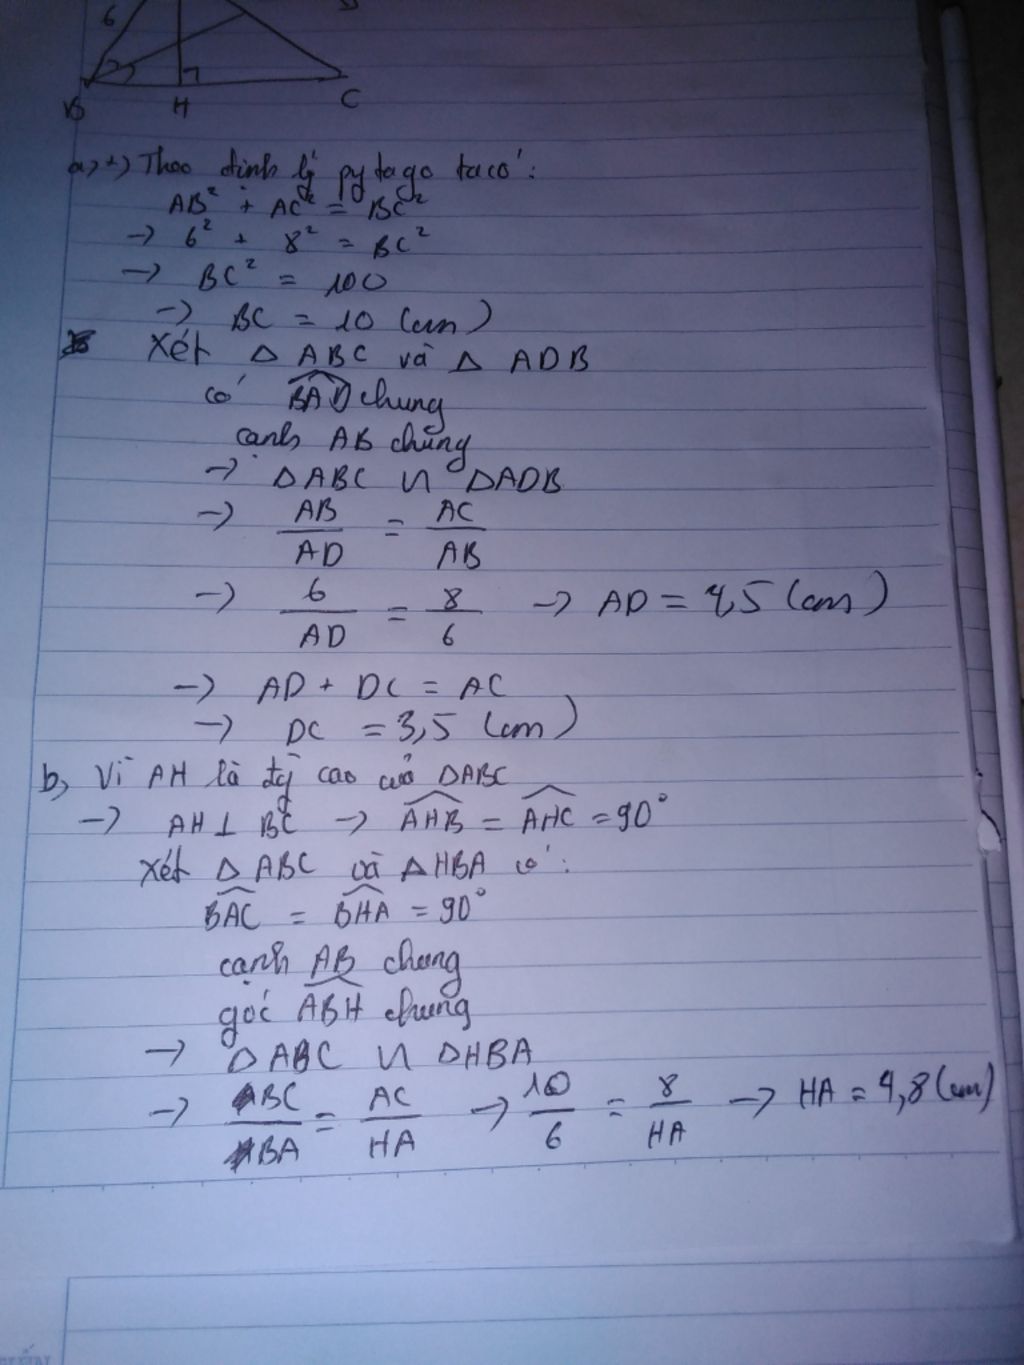 6
B H C
a, +) Theo định lý pytago ta có:
AB² + AC² = BC²
→ 6² + 8² = BC²
→ BC² = 100
→ BC = 10 (cm)
Xét △ ABC và △ ADB
có BAD chung
cạnh AB chung
→ △ABC ∽ △ADB
→ AB/AD = AC/AB
→ 6/AD = 8/6 → AD = 4,5 (cm)
→ AD + DC = AC
→ DC = 3,5 (cm)
b, Vì AH là đg cao của △ABC
→ AH ⊥ BC → AHB = AHC = 90°
Xét △ ABC và △ HBA có:
BAC = BHA = 90°
cạnh AB chung
góc ABH chung
→ △ABC ∽ △HBA
→ BC/BA = AC/HA → 10/6 = 8/HA → HA = 4,8 (cm)